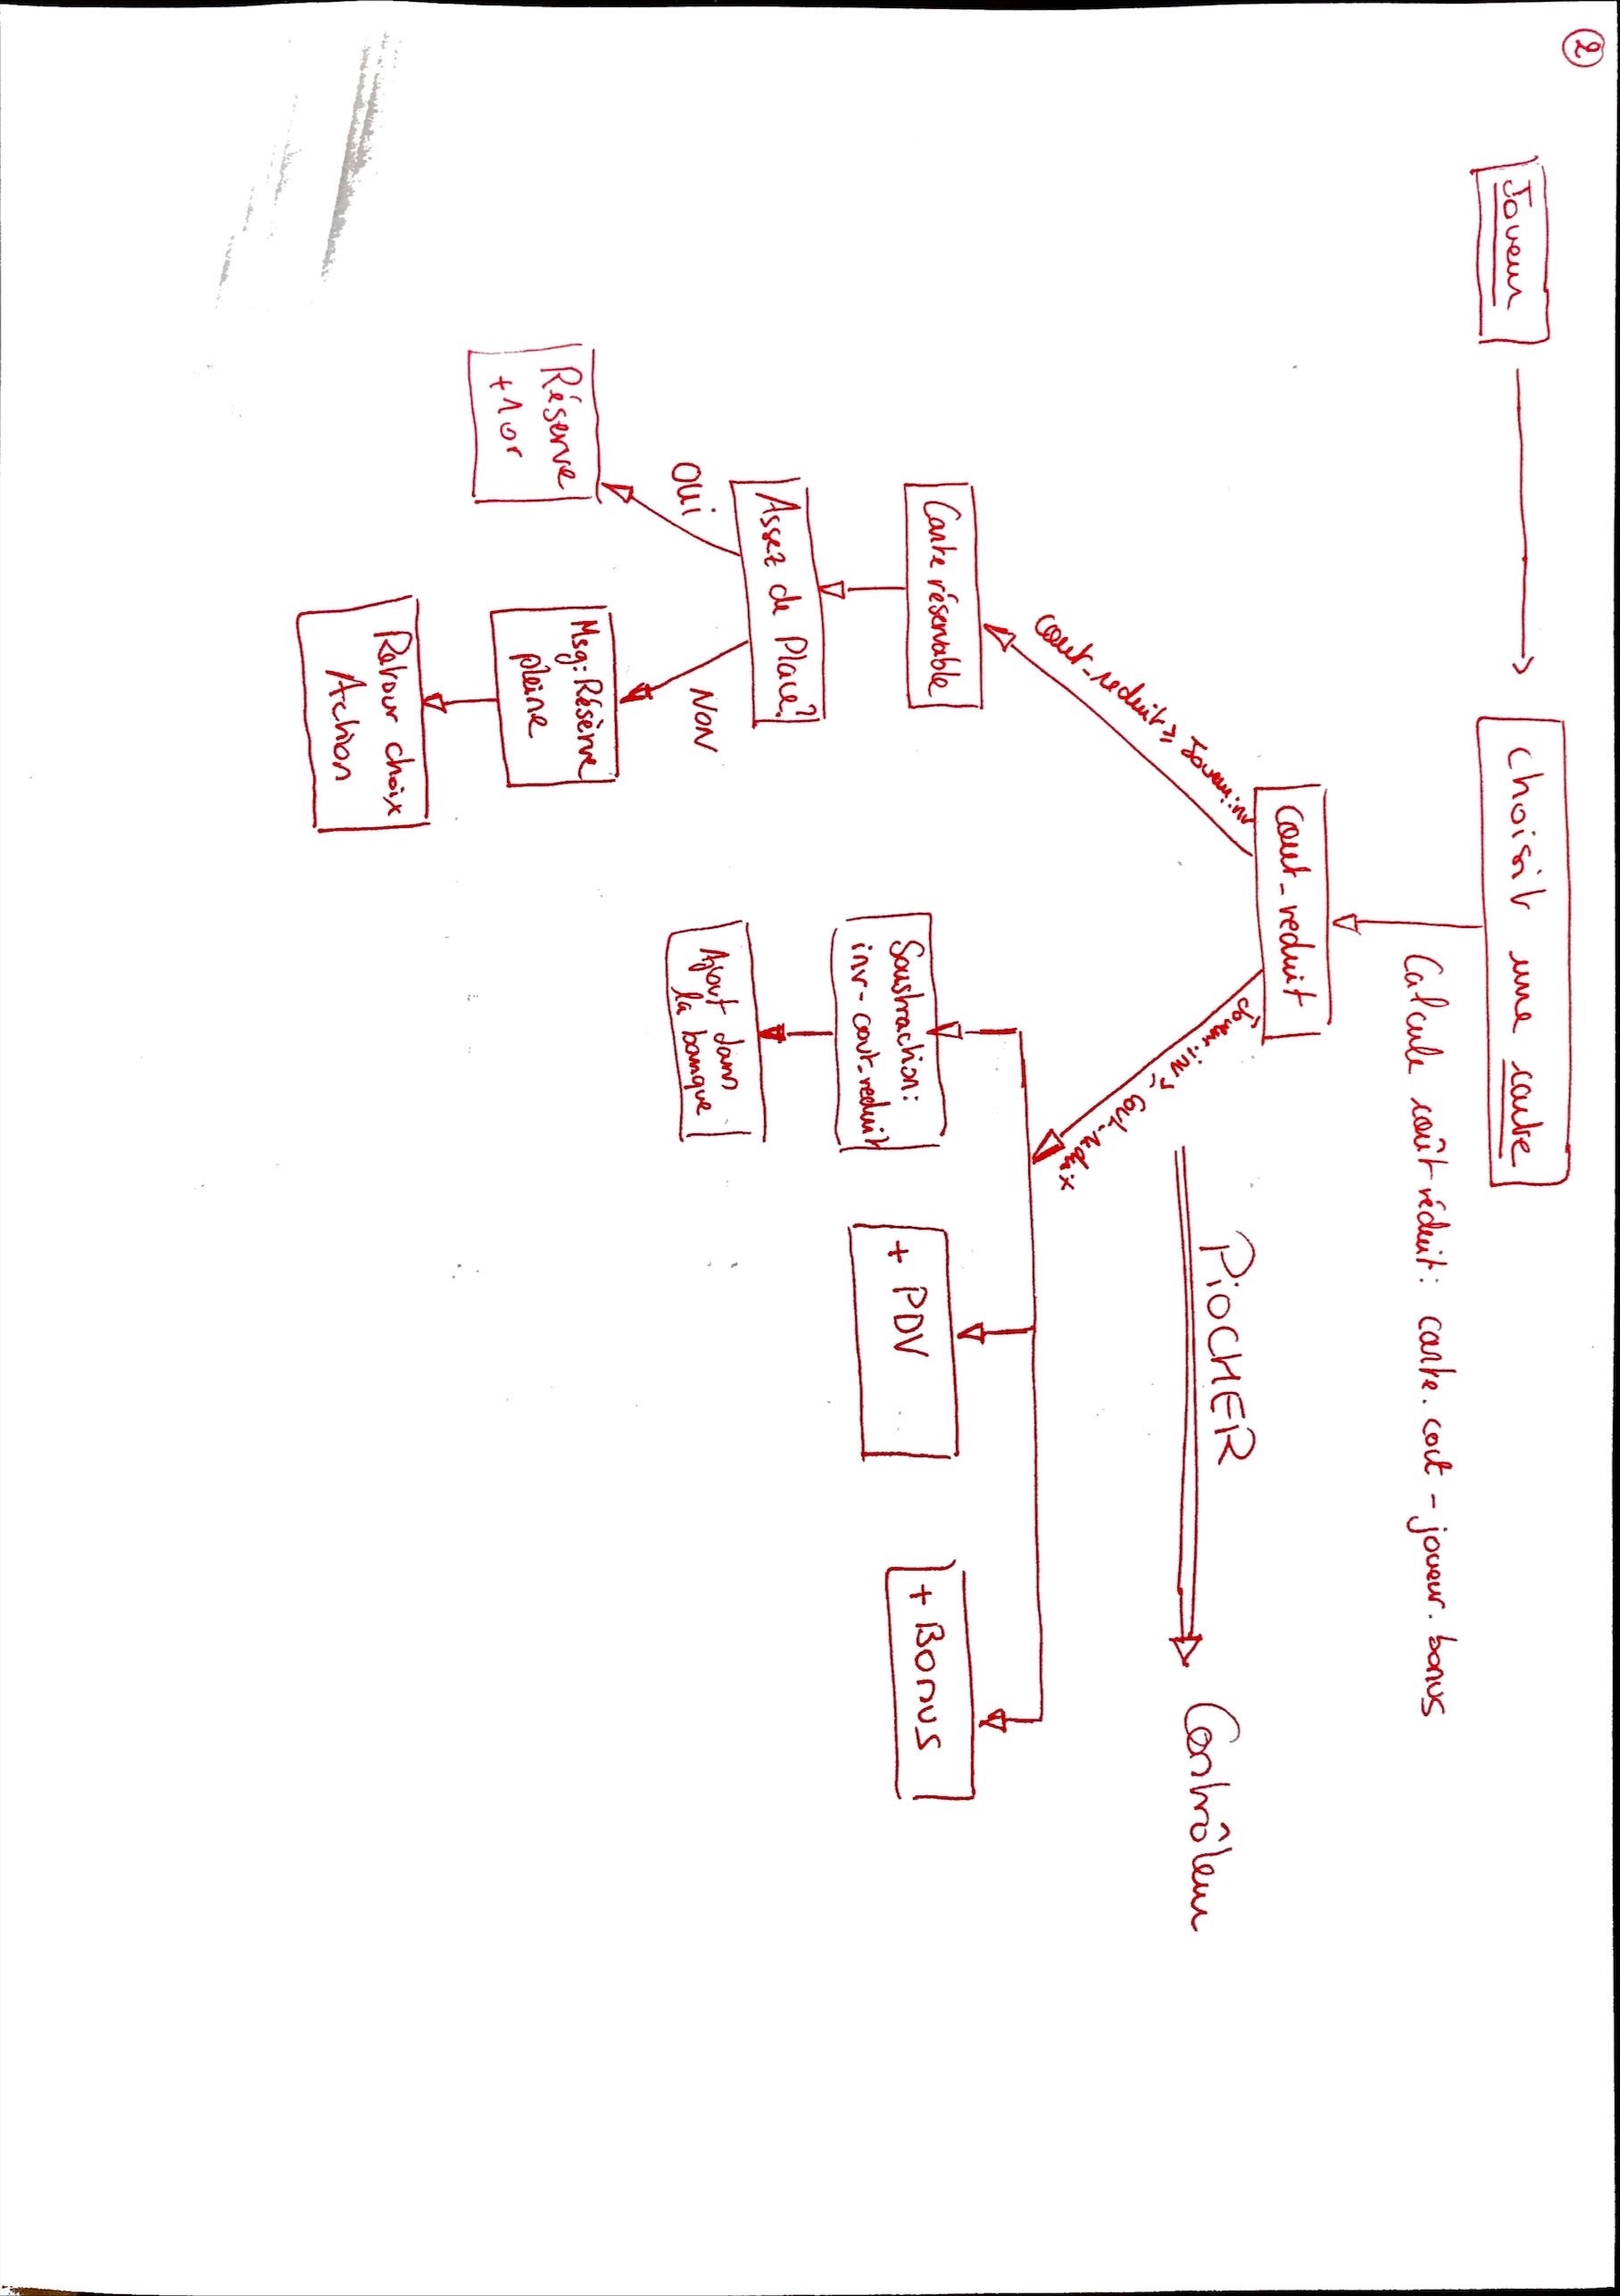 2
Joueur
choisir une carte
Calcule coût réduit : carte.cout - joueur.bonus
cout_reduit
cout_reduit > Joueur.inv
PiOCHER
Contrôleur
Carte réservable
Assez de Place?
OUi
NON
Réserve
+1 or
Msg: Réserve
pleine
Retour choix
Action
Soustraction:
inv - cout_reduit
Ajout dans
la banque
+ PDV
+ Bonus